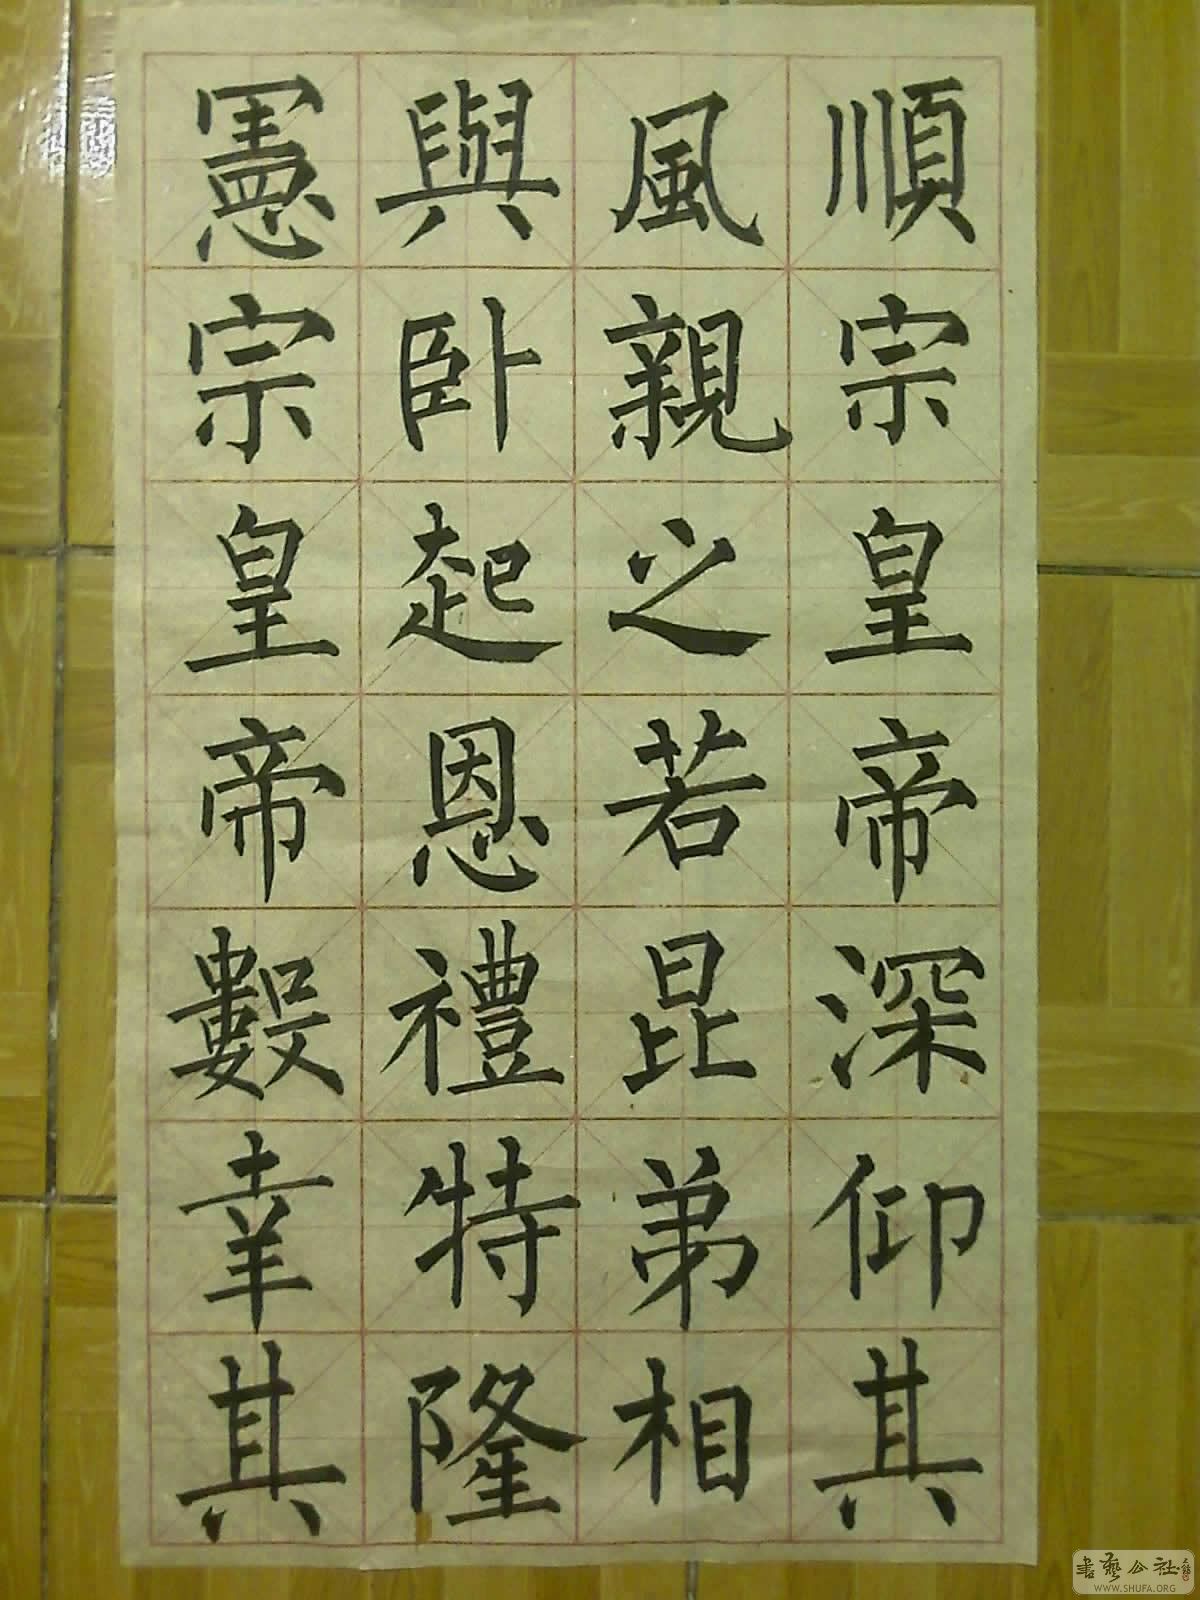 順宗皇帝深仰其
風親之若昆弟相
與卧起恩禮特隆
憲宗皇帝數幸其
書藝公社
WWW.SHUFA.ORG